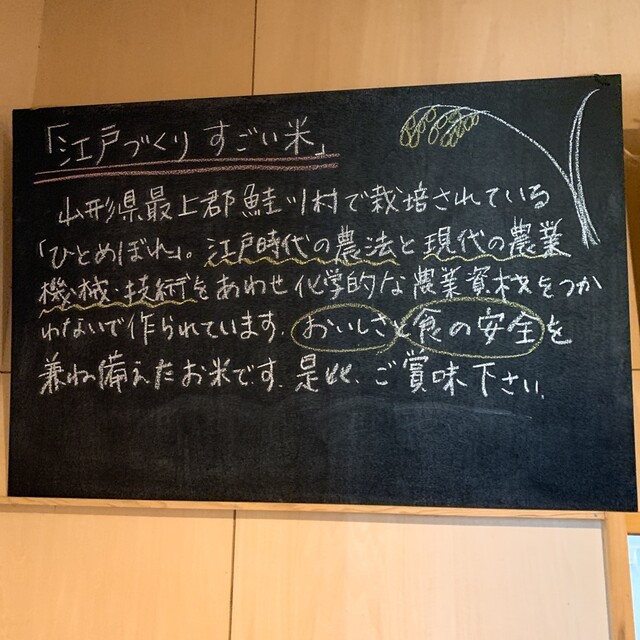 「江戸づくり すごい米」
山形県最上郡鮭川村で栽培されている
「ひとめぼれ」。江戸時代の農法と現代の農業
機械・技術をあわせ化学的な農業資材をつか
わないで作られています。おいしさと食の安全を
兼ね備えたお米です。是非、ご賞味下さい。